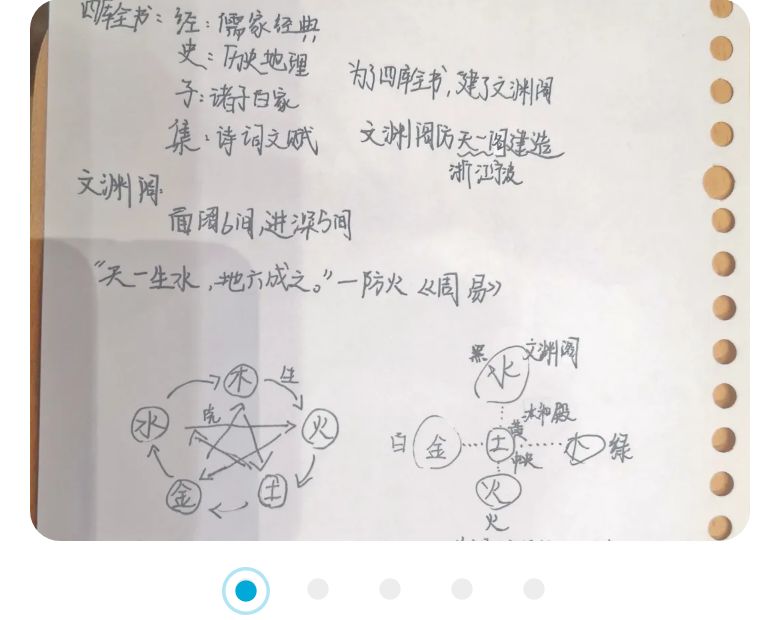 四库全书：经：儒家经典
史：历史地理
子：诸子百家
集：诗词文赋
为了四库全书，建了文渊阁
文渊阁仿天一阁建造
浙江宁波
文渊阁：
面阔6间，进深5间
“天一生水，地六成之。”—防火《周易》
木
生
水
克
火
金
土
黑
水
文渊阁
太和殿
白
金
土
黄
中央
木
绿
火
火